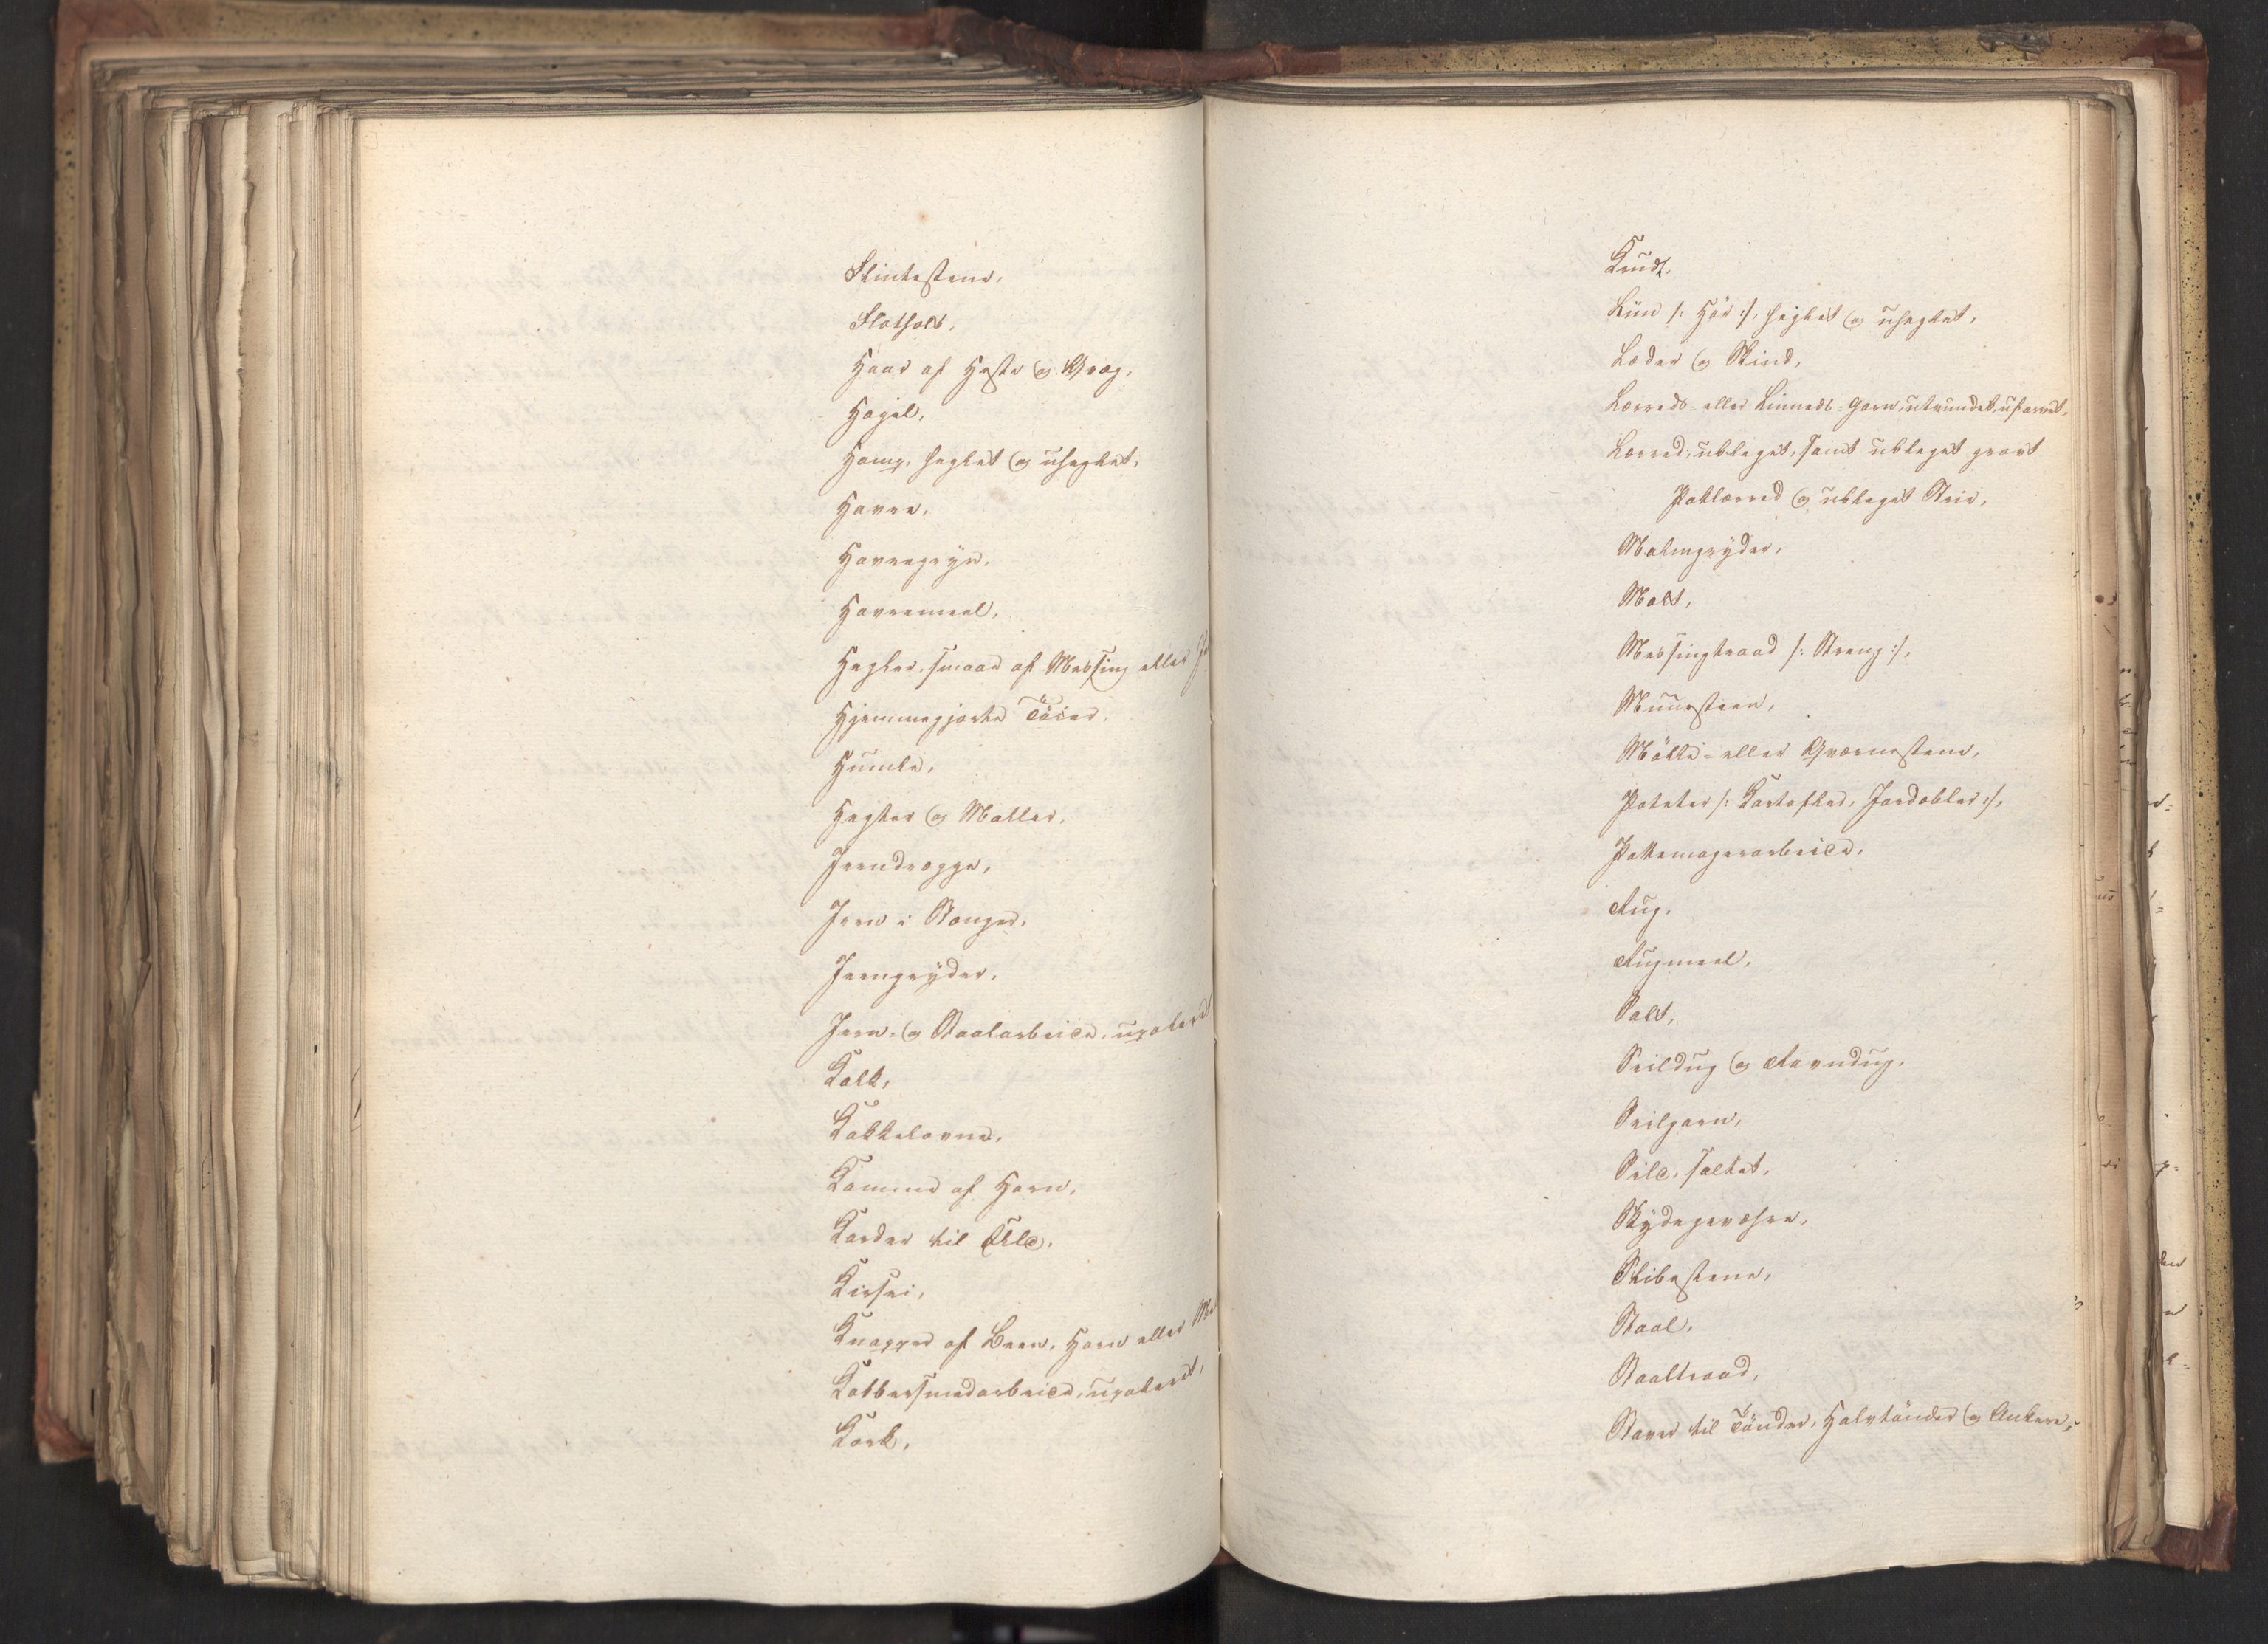 Flintestene,
Flothold,
Haar af Heste og Qvæg,
Hagel,
Hamp, heglet og uheglet,
Havre,
Havregryn,
Havremeel,
Hegter, smaae af Messing eller
Hjemmegjorte Töier,
Humle,
Hegter og Maller,
Jerndragge,
Jern i Stænger,
Jerngryder,
Jern- og Staalarbeide, upoleret
Kalk,
Kakkelovne,
Kamme af Horn,
Karder til Uld,
Kirsei,
Knapper af Been, Horn eller
Kobbersmedarbeide, upoleret,
Kork,
Krudt,
Liin /: Hör :/, heglet og uheglet,
Læder og Skind,
Lærreds- eller Linneds-Garn, utvundet, ufarvet,
Lærred, ubleget, samt ubleget grovt
Paklærred og ubleget Strie,
Malmgryder,
Malt,
Messingtraad /: Streng :/,
Muursteen,
Mölle- eller Qværnestene,
Poteter /: Kartofler, Jordæbler :/,
Pottemagerarbeide,
Rug,
Rugmeel,
Salt,
Seildug og Ravndug,
Seilgarn,
Sild, saltet,
Skydegevæhre,
Slibestene,
Staal,
Staaltraad,
Staver til Tönder, Halvtönder og Ankere,